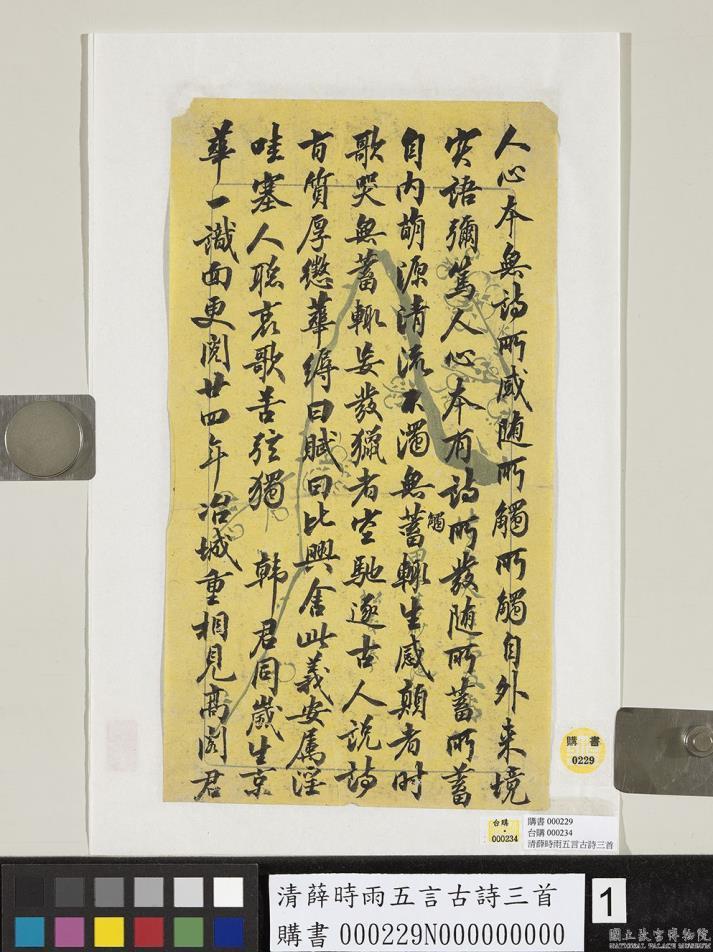 人心本無詩所感随所觸所觸自外来境
实語彌篤人心本有詩所發随所蓄所蓄
自内萌源清流不濁無蓄觸輙生感顛者时
歌哭無蓄輙妄發獵者空馳逐古人説詩
旨質厚懲華縟曰賦曰比興舍此義安屬淫
哇塞人聦哀歌苦弦獨 韩君同嵗生京
華一識面更閲廿四年冶城重相見高阁君
購書
0229
台購
000234
購書 000229
台購 000234
清薛時雨五言古詩三首
清薛時雨五言古詩三首
購書 000229N000000000
1
國立故宮博物院
NATIONAL PALACE MUSEUM